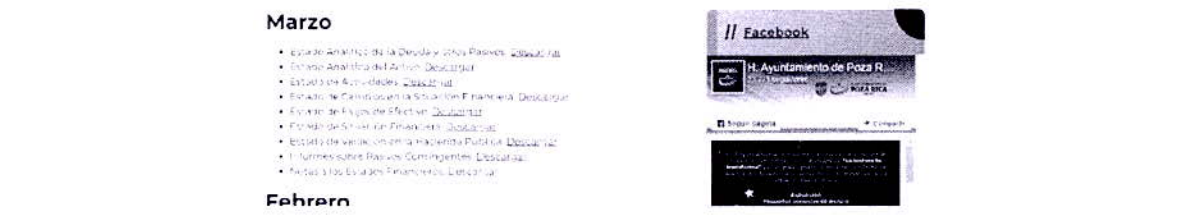 Marzo
Estado Analítico de la Deuda y otros Pasivos. Descargar
Estado Analítico del Activo. Descargar
Estado de Actividades. Descargar
Estado de Cambios en la Situación Financiera. Descargar
Estado de Flujos de Efectivo. Descargar
Estado de Situación Financiera. Descargar
Estado de Variación en la Hacienda Pública. Descargar
Informes sobre Pasivos Contingentes. Descargar
Notas a los Estados Financieros. Descargar
Febrero
// Facebook
H. Ayuntamiento de Poza R...
POZA RICA
Seguir página
Compartir